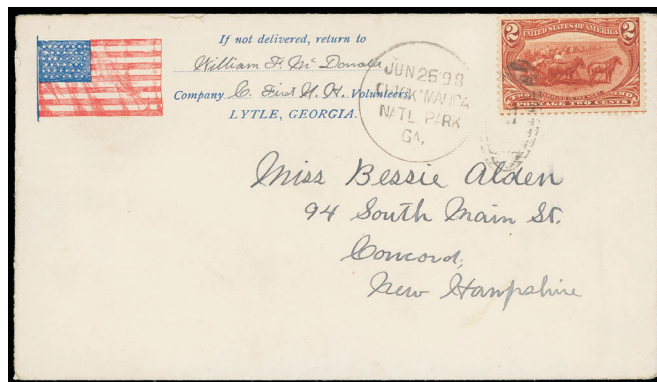 If not delivered, return to
William F. McDonald
Company C. First N. H. Volunteers,
LYTLE, GEORGIA.
JUN 25 98
CHICK'MAUGA
NAT'L PARK
GA.
2 UNITED STATES OF AMERICA 2
POSTAGE TWO CENTS
Miss Bessie Alden
94 South Main St.
Concord,
New Hampshire